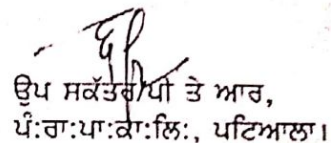 ਉਪ ਸਕੱਤਰ/ਪੀ ਤੇ ਆਰ,
ਪੰ:ਰਾ:ਪਾ:ਕਾ:ਲਿ:, ਪਟਿਆਲਾ।